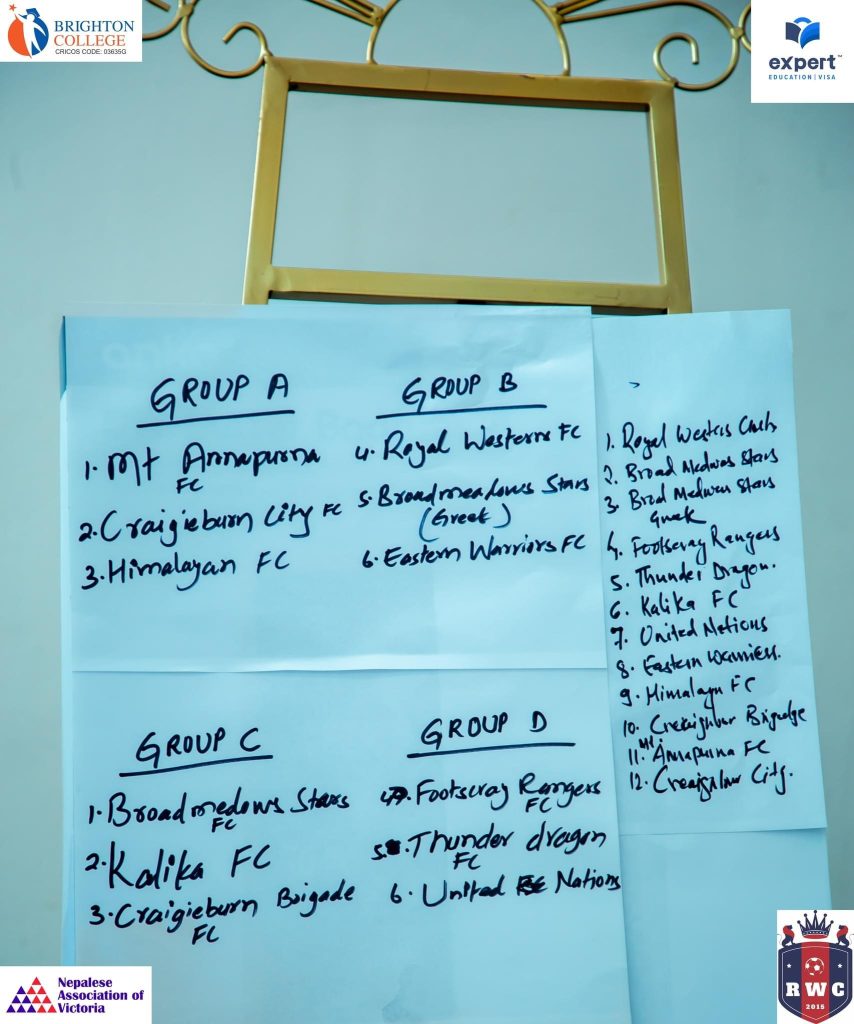 BRIGHTON
COLLEGE
CRICOS CODE: 03635G
expert™
EDUCATION | VISA
GROUP A
1. Mt Annapurna
FC
2. Craigieburn City FC
3. Himalayan FC
GROUP B
4. Royal Western FC
5. Broadmeadows Stars
(Greek)
6. Eastern Warriors FC
GROUP C
1. Broadmedows Stars
FC
2. Kalika FC
3. Craigieburn Brigade
FC
GROUP D
4. Footscray Rangers
FC
5. Thunder dragon
FC
6. United Nations
1. Royal Westers
2. Broad Medwos Stars
3. Brod Medwes Stars
4. Footscray Rangers
5. Thunder Dragon.
6. Kalika FC
7. United Nations
8. Eastern Warriers.
9. Himalayn FC
10.
11. Mt. Annapurna FC
12. City.
Nepalese
Association of
Victoria
RWC
2015